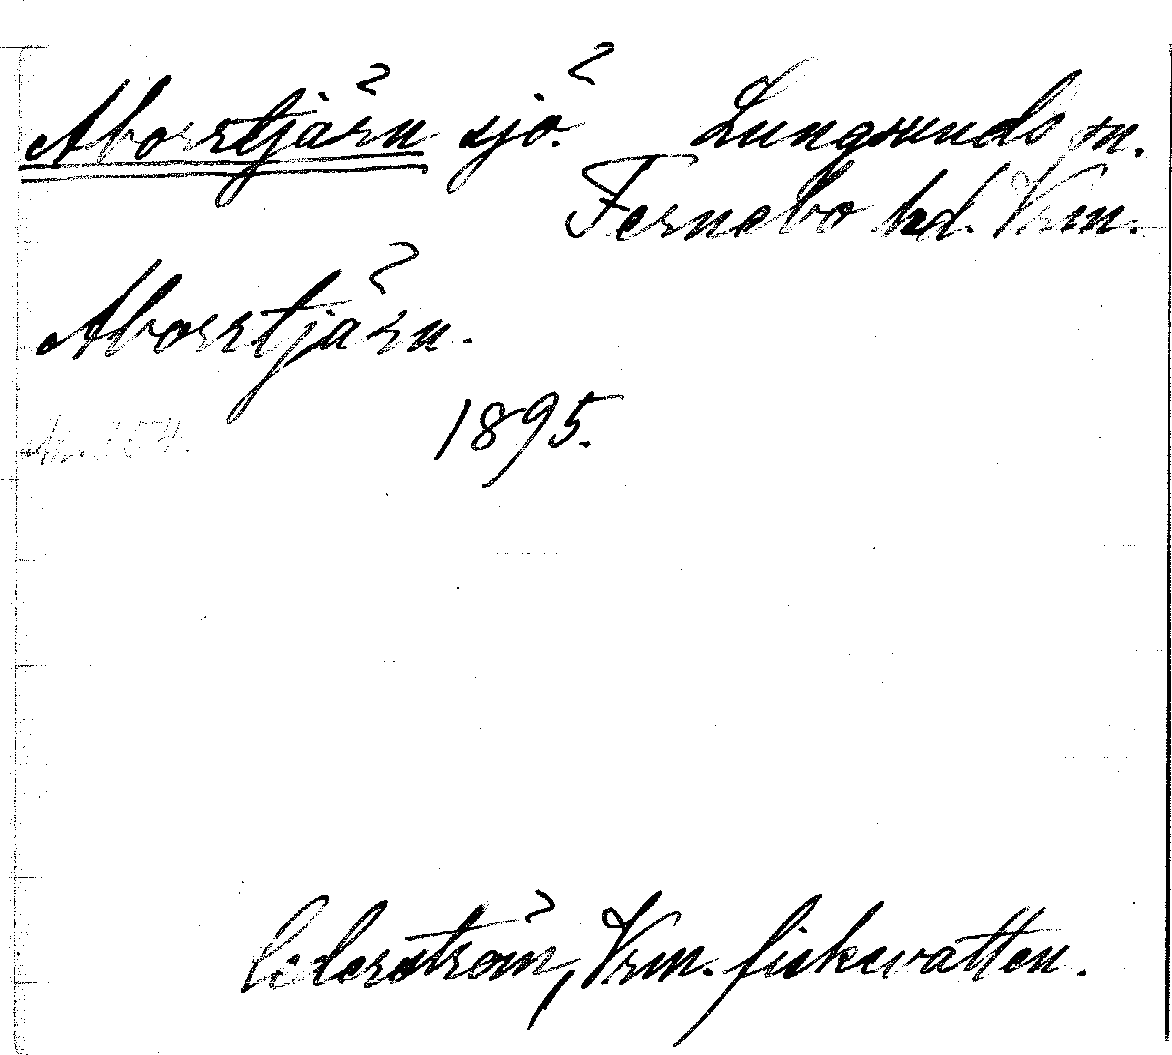 Aborrtjärn sjö. Lungsunds sn.
Fernebo hd. Vrm.
Aborrtjärn.
1895.
Cederström, Vrm. fiskevatten.